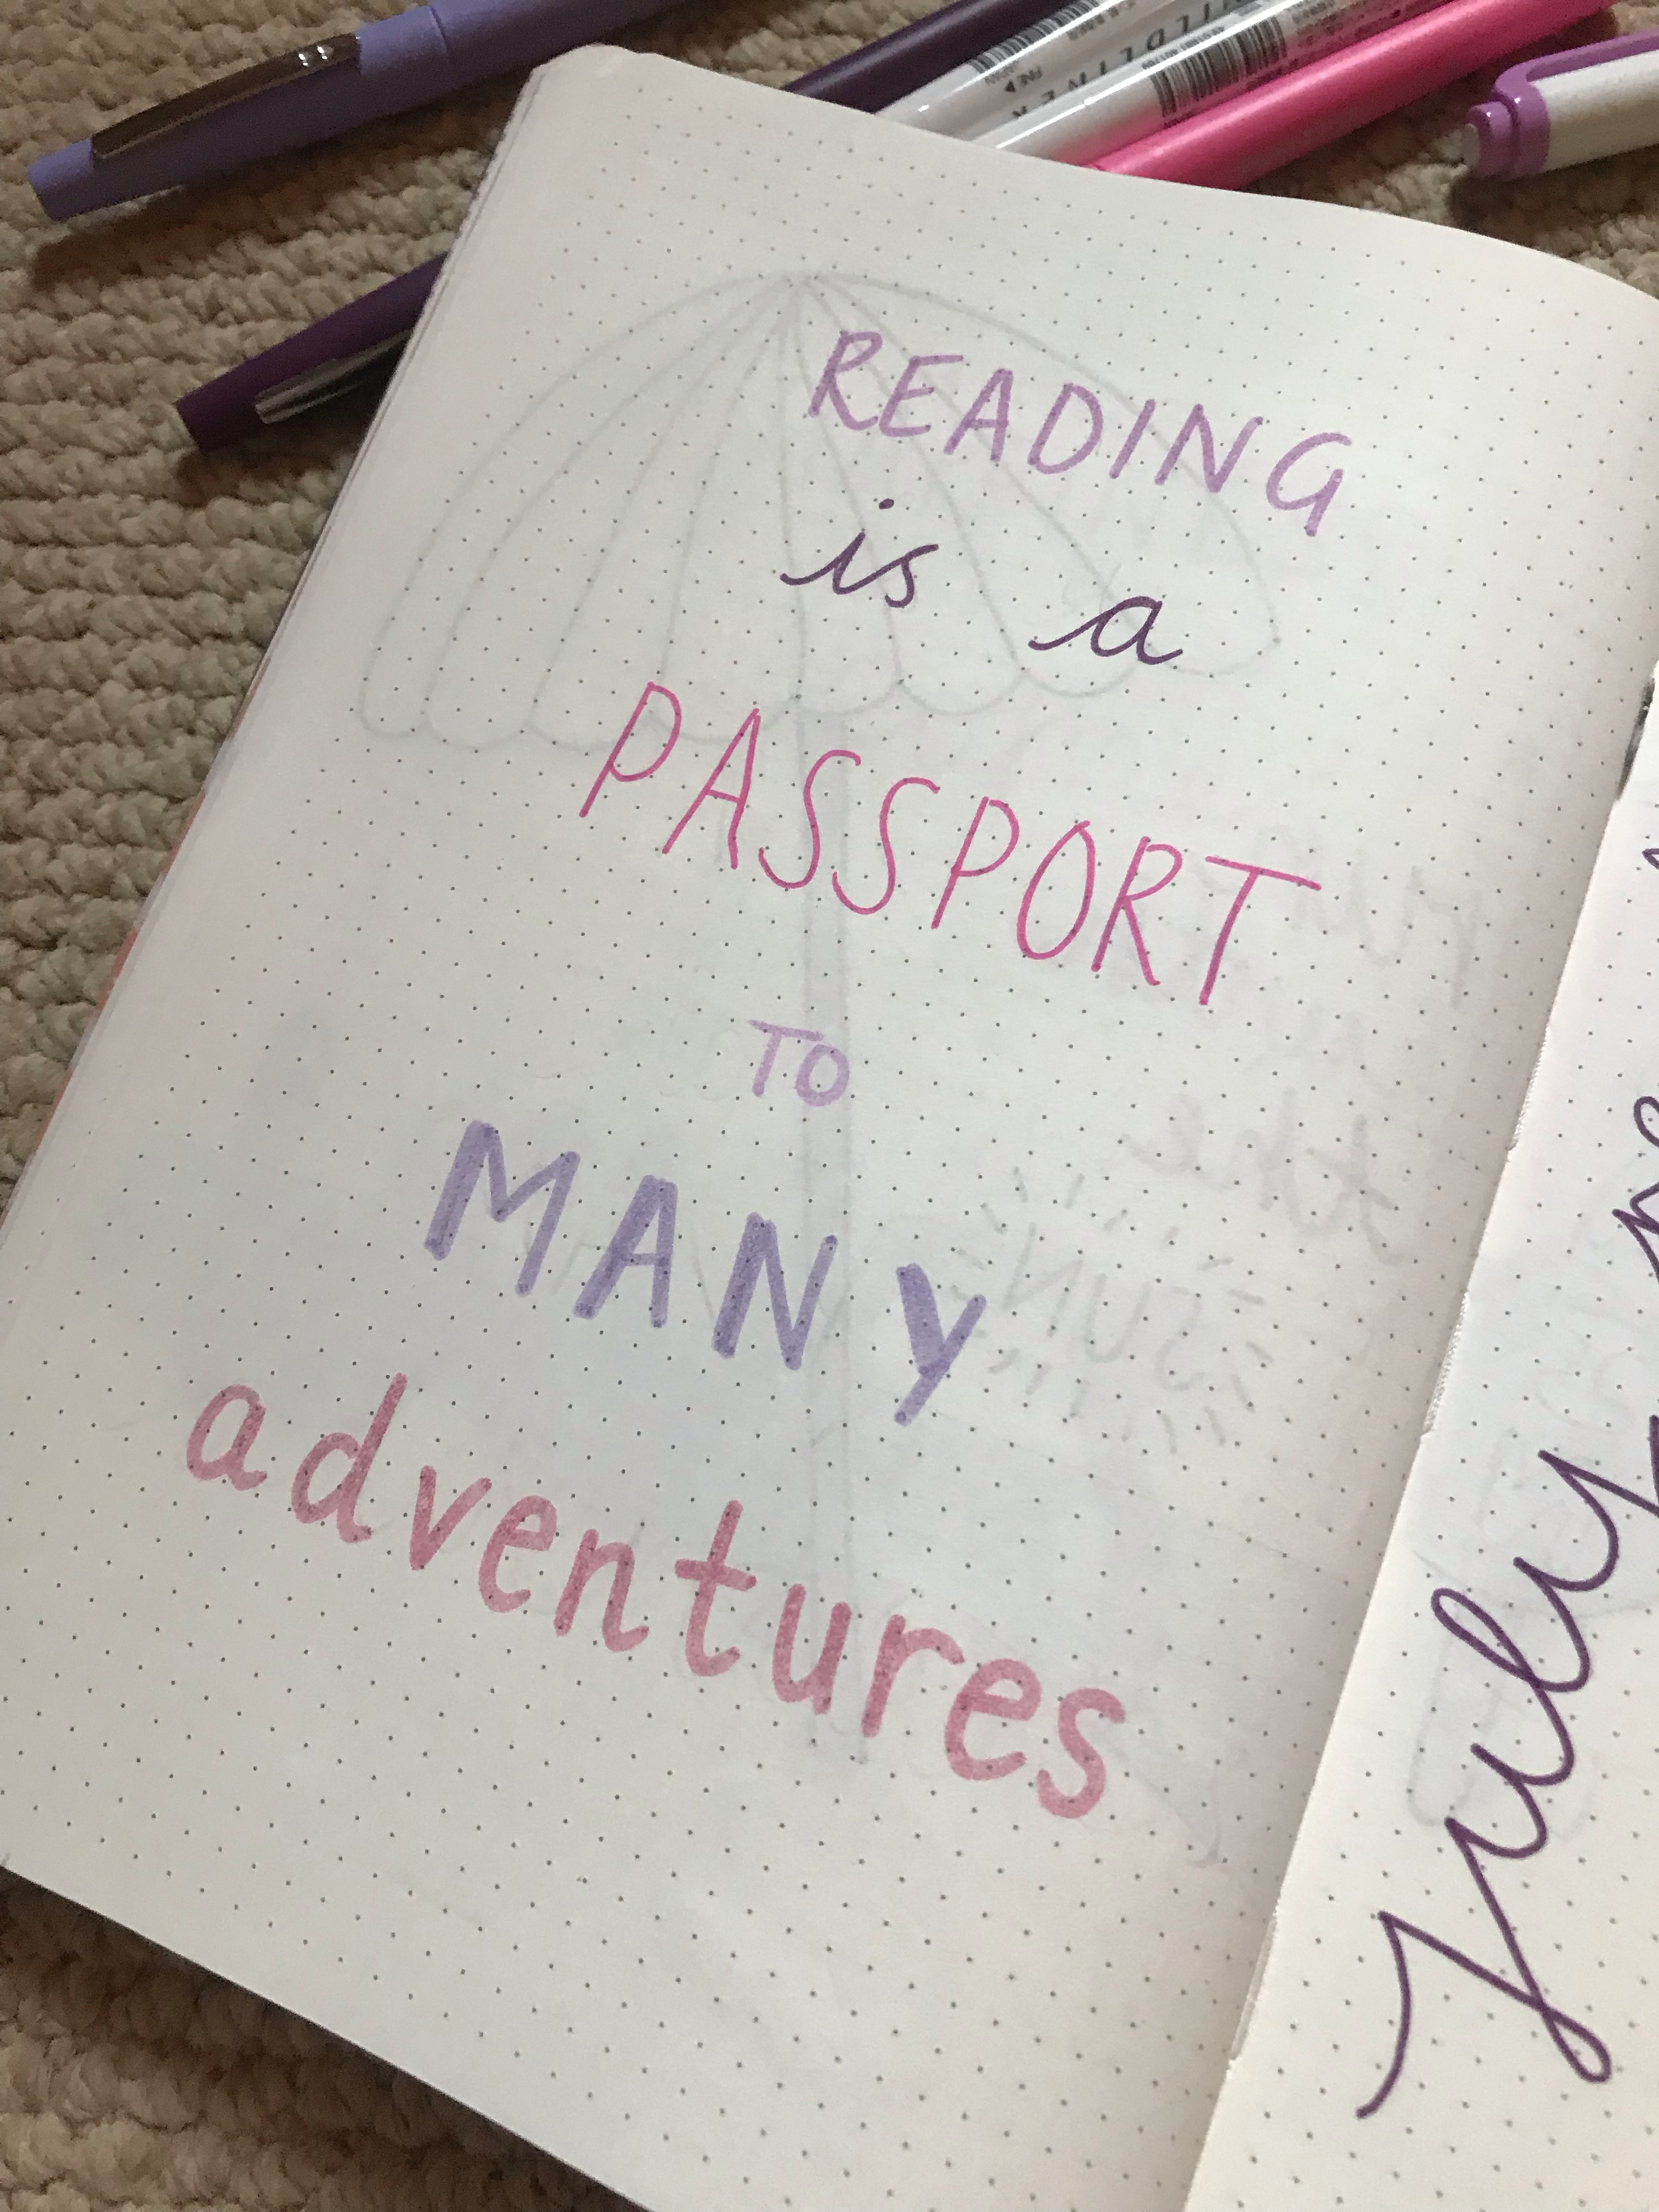 READING
is a
PASSPORT
TO
MANY
adventures
July
MILDLINER
the
SUN